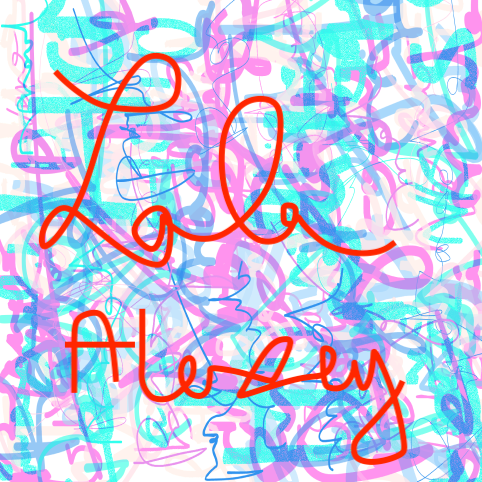 Lala
Alexey